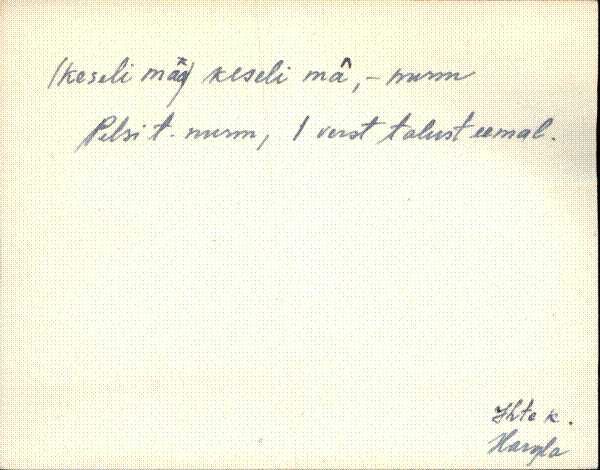 (keseli mäg) keseli mâ, - nurm
Pelsi t. nurm, 1 verst talust eemal.
Ihte k.
Hargla